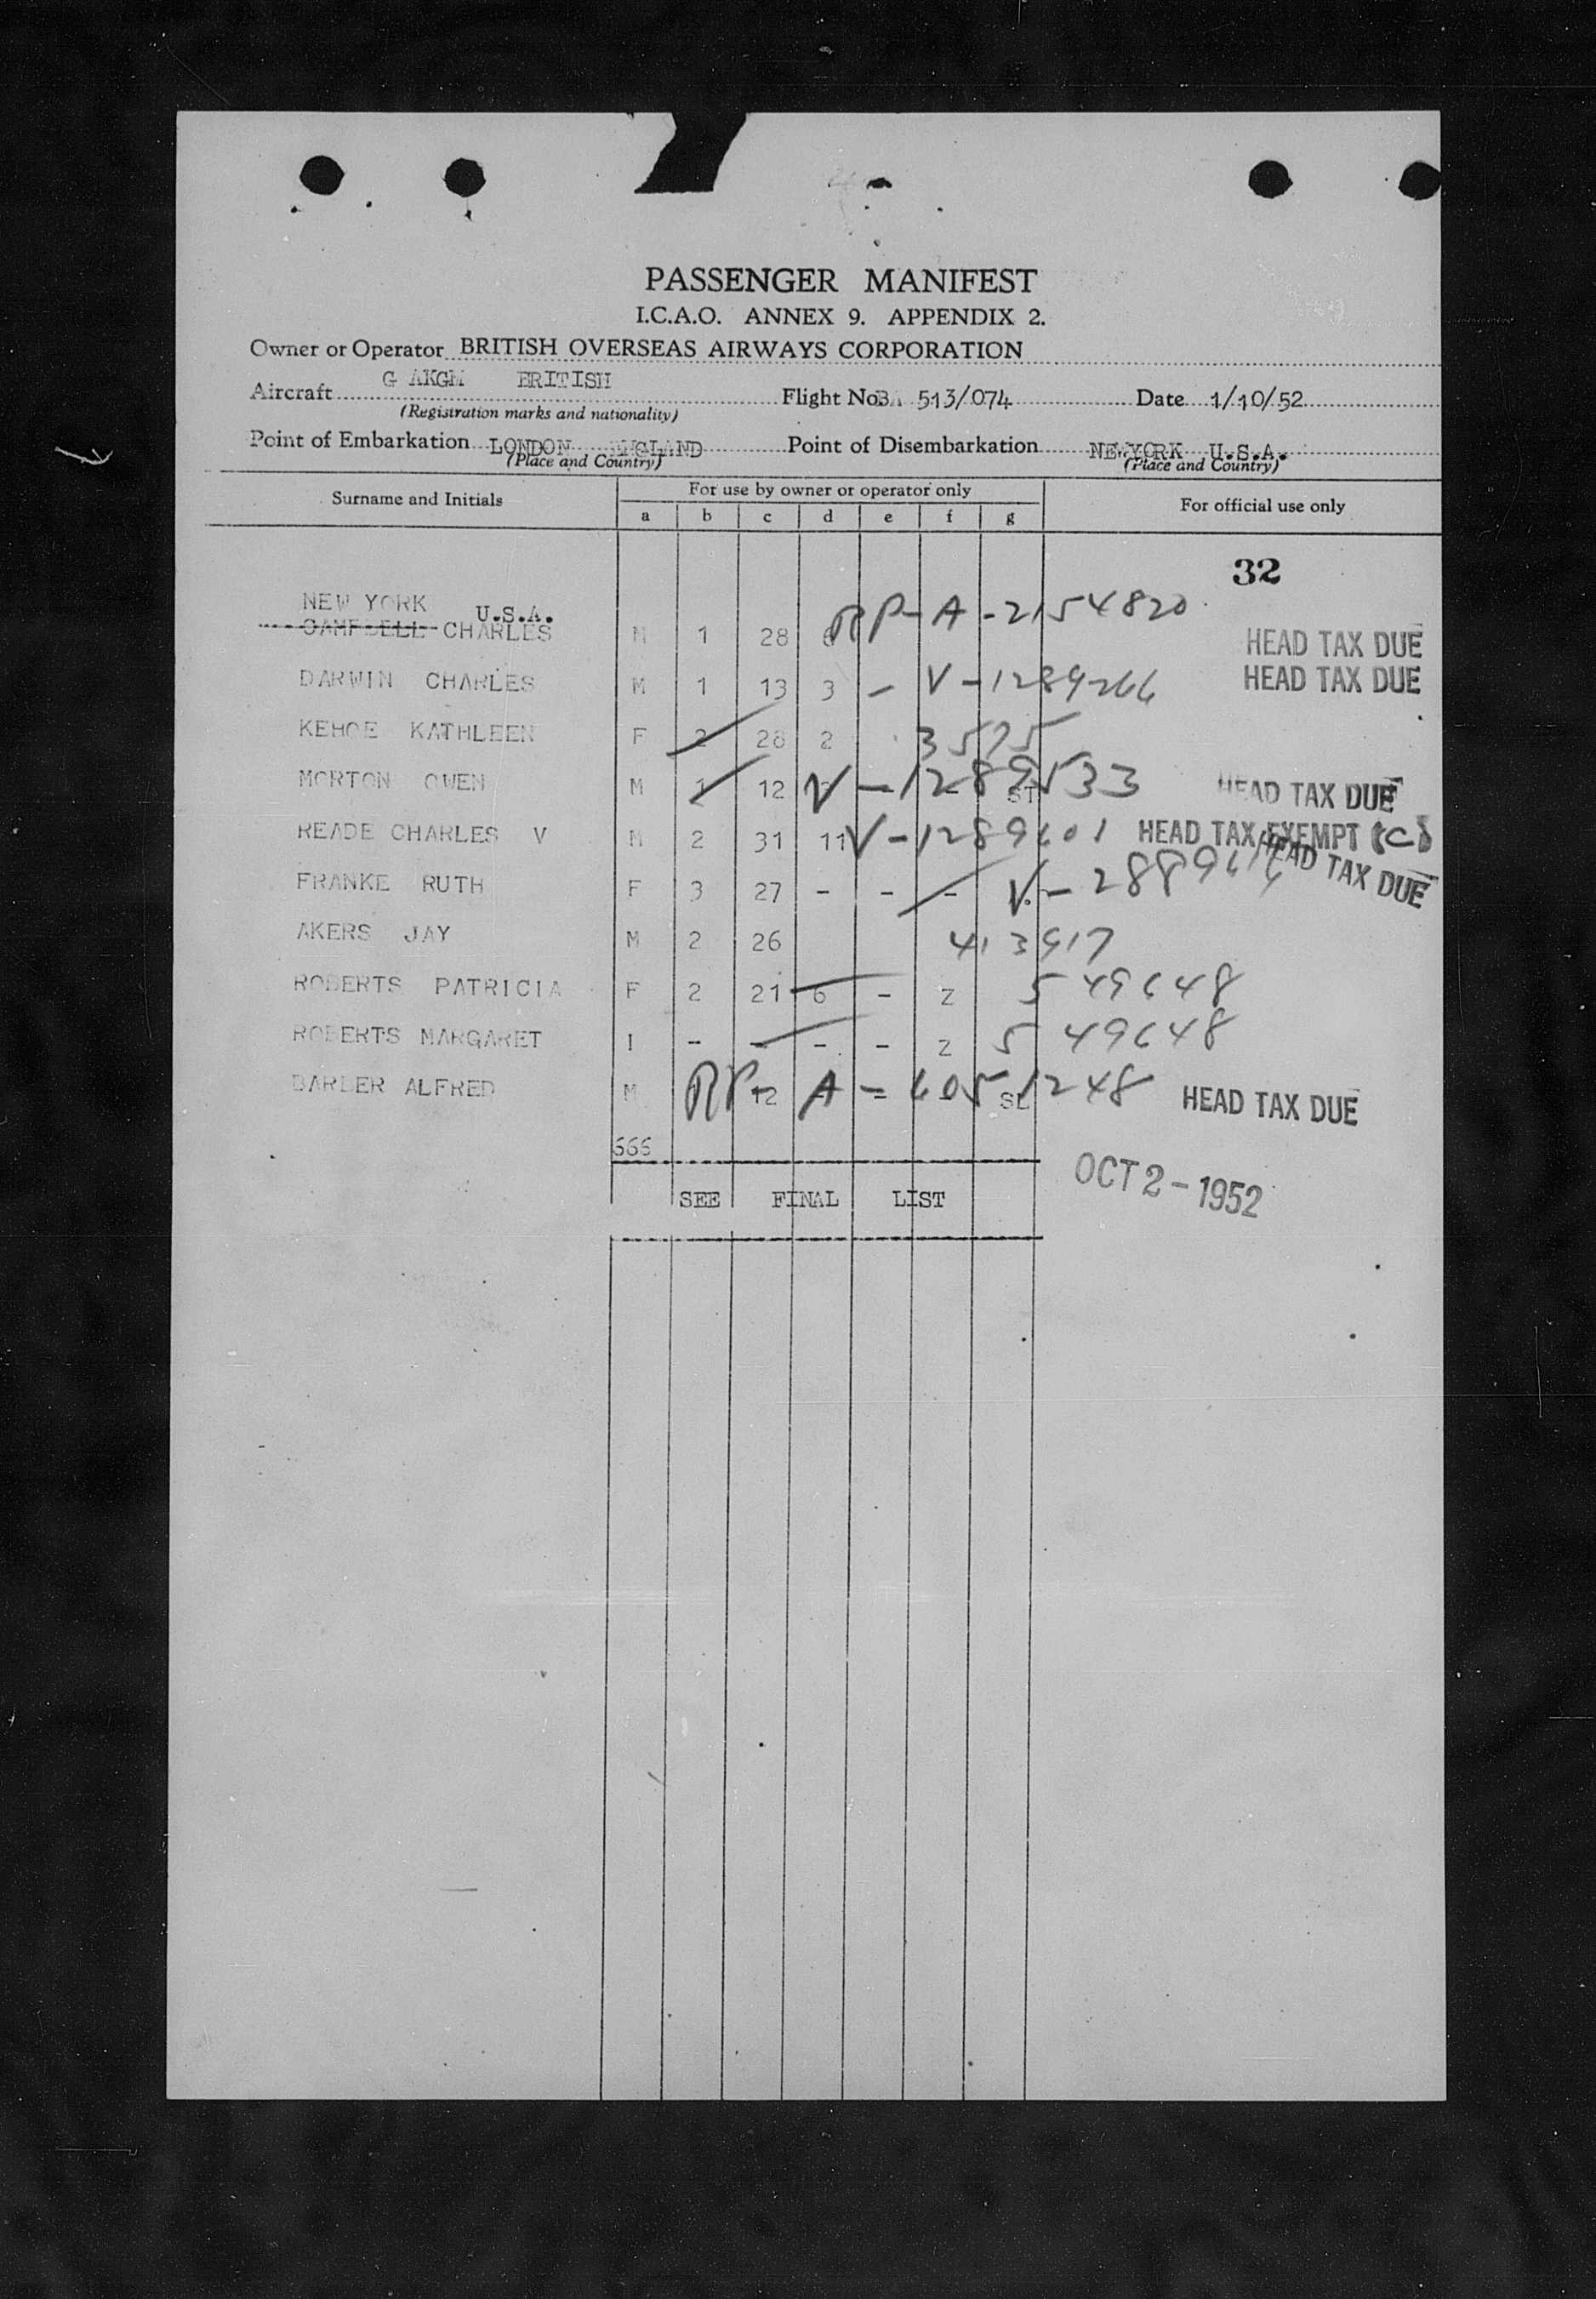 PASSENGER MANIFEST
I.C.A.O. ANNEX 9. APPENDIX 2.
Owner or Operator BRITISH OVERSEAS AIRWAYS CORPORATION
Aircraft G AKGM BRITISH Flight No. BA 513/074 Date 1/10/52
(Registration marks and nationality)
Point of Embarkation LONDON ENGLAND Point of Disembarkation NEW YORK U.S.A.
(Place and Country) (Place and Country)
Surname and Initials For use by owner or operator only For official use only
a b c d e f g
32
NEW YORK U.S.A.
CAMPBELL CHARLES M 1 28 RP-A-2154820 HEAD TAX DUE
DARWIN CHARLES M 1 13 3 - V-1289266 HEAD TAX DUE
KEHOE KATHLEEN F 2 28 2 3575
MORTON OWEN M 1 12 V-1289533 ST HEAD TAX DUE
READE CHARLES V M 2 31 11 V-1289601 HEAD TAX EXEMPT
FRANKE RUTH F 3 27 - - - V-288961 HEAD TAX DUE
AKERS JAY M 2 26 413917
ROBERTS PATRICIA F 2 21 6 - Z 549648
ROBERTS MARGARET I - - - - Z 549648
BARBER ALFRED M 12 RP-A-6051248 HEAD TAX DUE
666
SEE FINAL LIST
OCT 2-1952